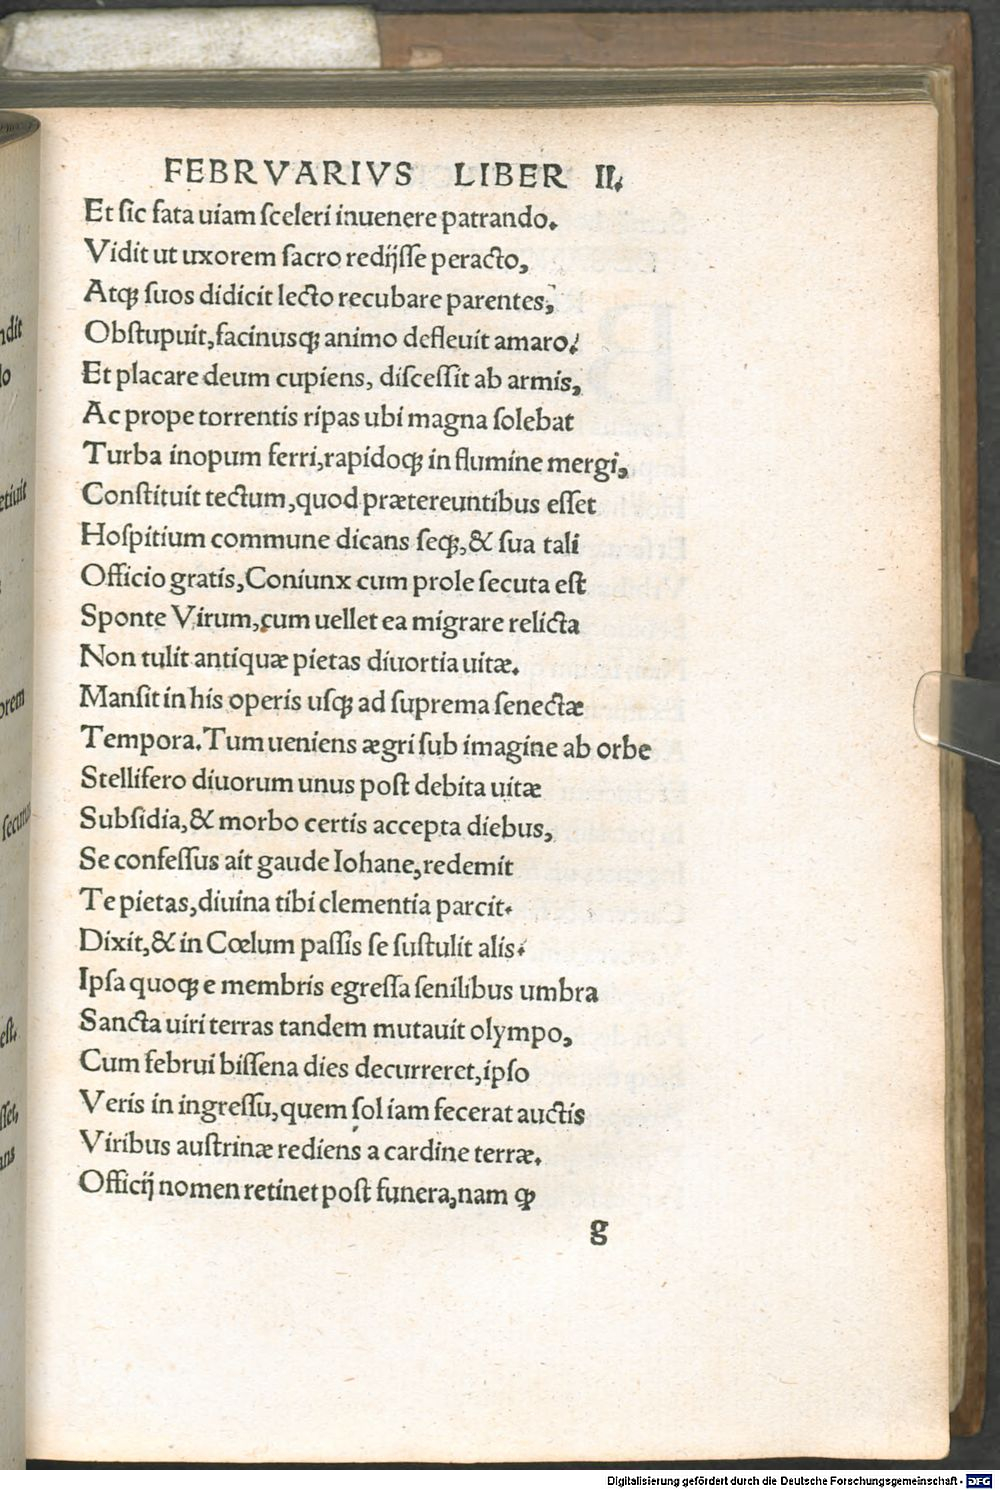 FEBRVARIVS LIBER II.
Et sic fata uiam sceleri inuenere patrando.
Vidit ut uxorem sacro redijsse peracto,
Atqꝫ suos didicit lecto recubare parentes,
Obstupuit, facinusqꝫ animo defleuit amaro.
Et placare deum cupiens, discessit ab armis,
Ac prope torrentis ripas ubi magna solebat
Turba inopum ferri, rapidoqꝫ in flumine mergi,
Constituit tectum, quod prætereuntibus esset
Hospitium commune dicans seqꝫ, & sua tali
Officio gratis, Coniunx cum prole secuta est
Sponte Virum, cum uellet ea migrare relicta
Non tulit antiquæ pietas diuortia uitæ.
Mansit in his operis usqꝫ ad suprema senectæ
Tempora. Tum ueniens ægri sub imagine ab orbe
Stellifero diuorum unus post debita uitæ
Subsidia, & morbo certis accepta diebus,
Se confessus ait gaude Iohane, redemit
Te pietas, diuina tibi clementia parcit.
Dixit, & in Cœlum passis se sustulit alis.
Ipsa quoqꝫ e membris egressa senilibus umbra
Sancta uiri terras tandem mutauit olympo,
Cum februi bissena dies decurreret, ipso
Veris in ingressu, quem sol iam fecerat auctis
Viribus austrinæ rediens a cardine terræ.
Officij nomen retinet post funera, nam qꝫ
g
Digitalisierung gefördert durch die Deutsche Forschungsgemeinschaft - DFG